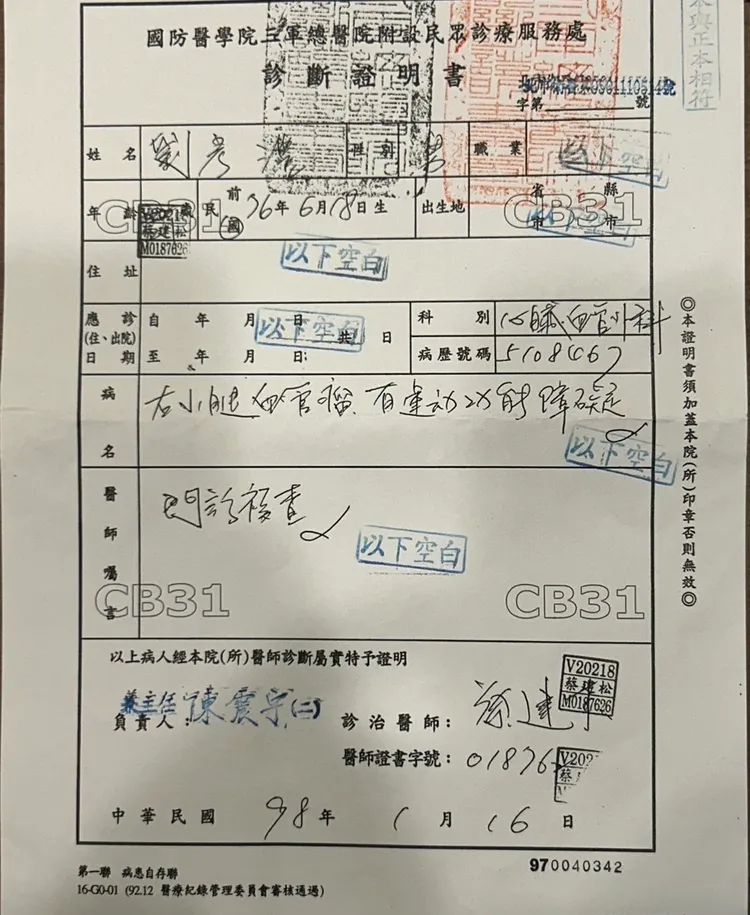 本與正本相符
國防醫學院三軍總醫院附設民眾診療服務處
診斷證明書
字第 號
姓名 劉彥 性別 男 職業 以下空白
年齡 歲 民 前 國 76年6月18日生 出生地 省 市 縣 市
V20218
蔡建松
M0187626
CB31 CB31
住址 以下空白
應診(住、出院)日期 自 年 月 日
至 年 月 日; 共 日
以下空白
科別 心臟血管外科
病歷號碼 5108467
病名 右小腿血管瘤 有運動功能障礙
以下空白
醫師囑言 門診複查
以下空白
CB31 CB31
以上病人經本院(所)醫師診斷屬實特予證明
負責人: 兼主任 陳震宇(二)
診治醫師: 蔡建松
V20218
蔡建松
M0187626
醫師證書字號: 01876
V202
蔡
中華民國 98年 1月 16日
◎本證明書須加蓋本院(所)印章否則無效◎
第一聯 病患自存聯
970040342
16-G0-01 (92.12 醫療紀錄管理委員會審核通過)